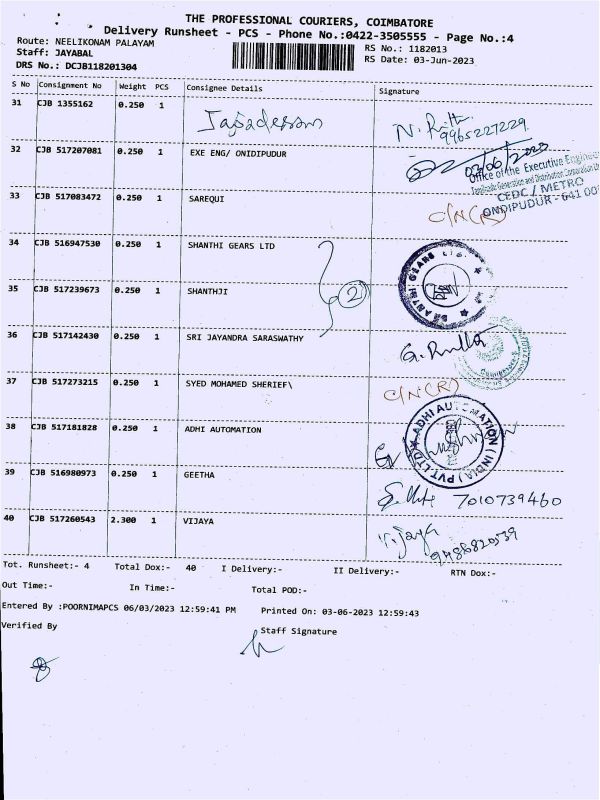 THE PROFESSIONAL COURIERS, COIMBATORE
Delivery Runsheet - PCS - Phone No.:0422-3505555 - Page No.:4
Route: NEELIKONAM PALAYAM
RS No.: 1182013
Staff: JAYABAL
RS Date: 03-Jun-2023
DRS No.: DCJB118201304
S No Consignment No Weight PCS Consignee Details Signature
31 CJB 1355162 0.250 1
9965227229
32 CJB 517207081 0.250 1 EXE ENG/ ONIDIPUDUR
Office of the Executive Engineer
CEDC / METRO
ONDIPUDUR - 641 00
33 CJB 517083472 0.250 1 SAREQUI C/N(R)
34 CJB 516947530 0.250 1 SHANTHI GEARS LTD
2
35 CJB 517239673 0.250 1 SHANTHJI
36 CJB 517142430 0.250 1 SRI JAYANDRA SARASWATHY
37 CJB 517273215 0.250 1 SYED MOHAMED SHERIEF\ C/N(R)
38 CJB 517181828 0.250 1 ADHI AUTOMATION
ADHI AUTOMATION (INDIA) PVT. LTD
39 CJB 516980973 0.250 1 GEETHA
7010739460
40 CJB 517260543 2.300 1 VIJAYA
Vijaya
Tot. Runsheet:- 4 Total Dox:- 40 I Delivery:- II Delivery:- RTN Dox:-
Out Time:- In Time:- Total POD:-
Entered By :POORNIMAPCS 06/03/2023 12:59:41 PM Printed On: 03-06-2023 12:59:43
Verified By Staff Signature